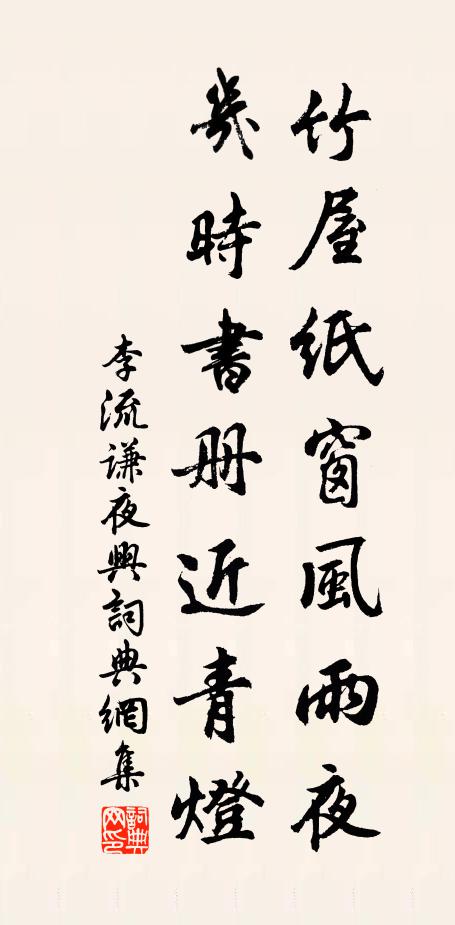 竹屋紙窗風雨夜
幾時書册近青燈
李流謙夜興詞典網集
詞典網印